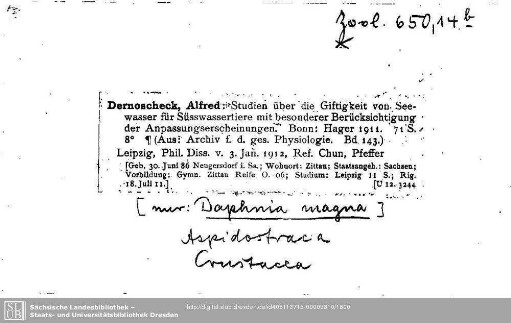 Zool. 650,14 b
Dernoscheck, Alfred: Studien über die Giftigkeit von See-
wasser für Süsswassertiere mit besonderer Berücksichtigung
der Anpassungserscheinungen. Bonn: Hager 1911. 71 S.
8° ¶ (Aus: Archiv f. d. ges. Physiologie. Bd 143.)
Leipzig, Phil. Diss. v. 3. Jan. 1912, Ref. Chun, Pfeffer
[Geb. 30. Juni 86 Neugersdorf i. Sa.; Wohnort: Zittau; Staatsangeh.: Sachsen;
Vorbildung: Gymn. Zittau Reife O. 06; Studium: Leipzig 11 S.; Rig.
18. Juli 11.] [U 12. 3244
[nur: Daphnia magna]
Aspidostraca
Crustacea
SLUB
Sächsische Landesbibliothek –
Staats- und Universitätsbibliothek Dresden